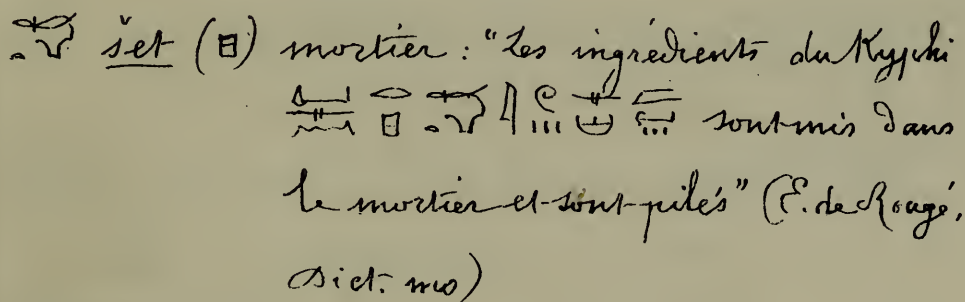 šet () mortier : "Les ingrédients du Kyphi
sont mis dans
le mortier et sont pilés" (E. de Rougé,
Dict. ms)